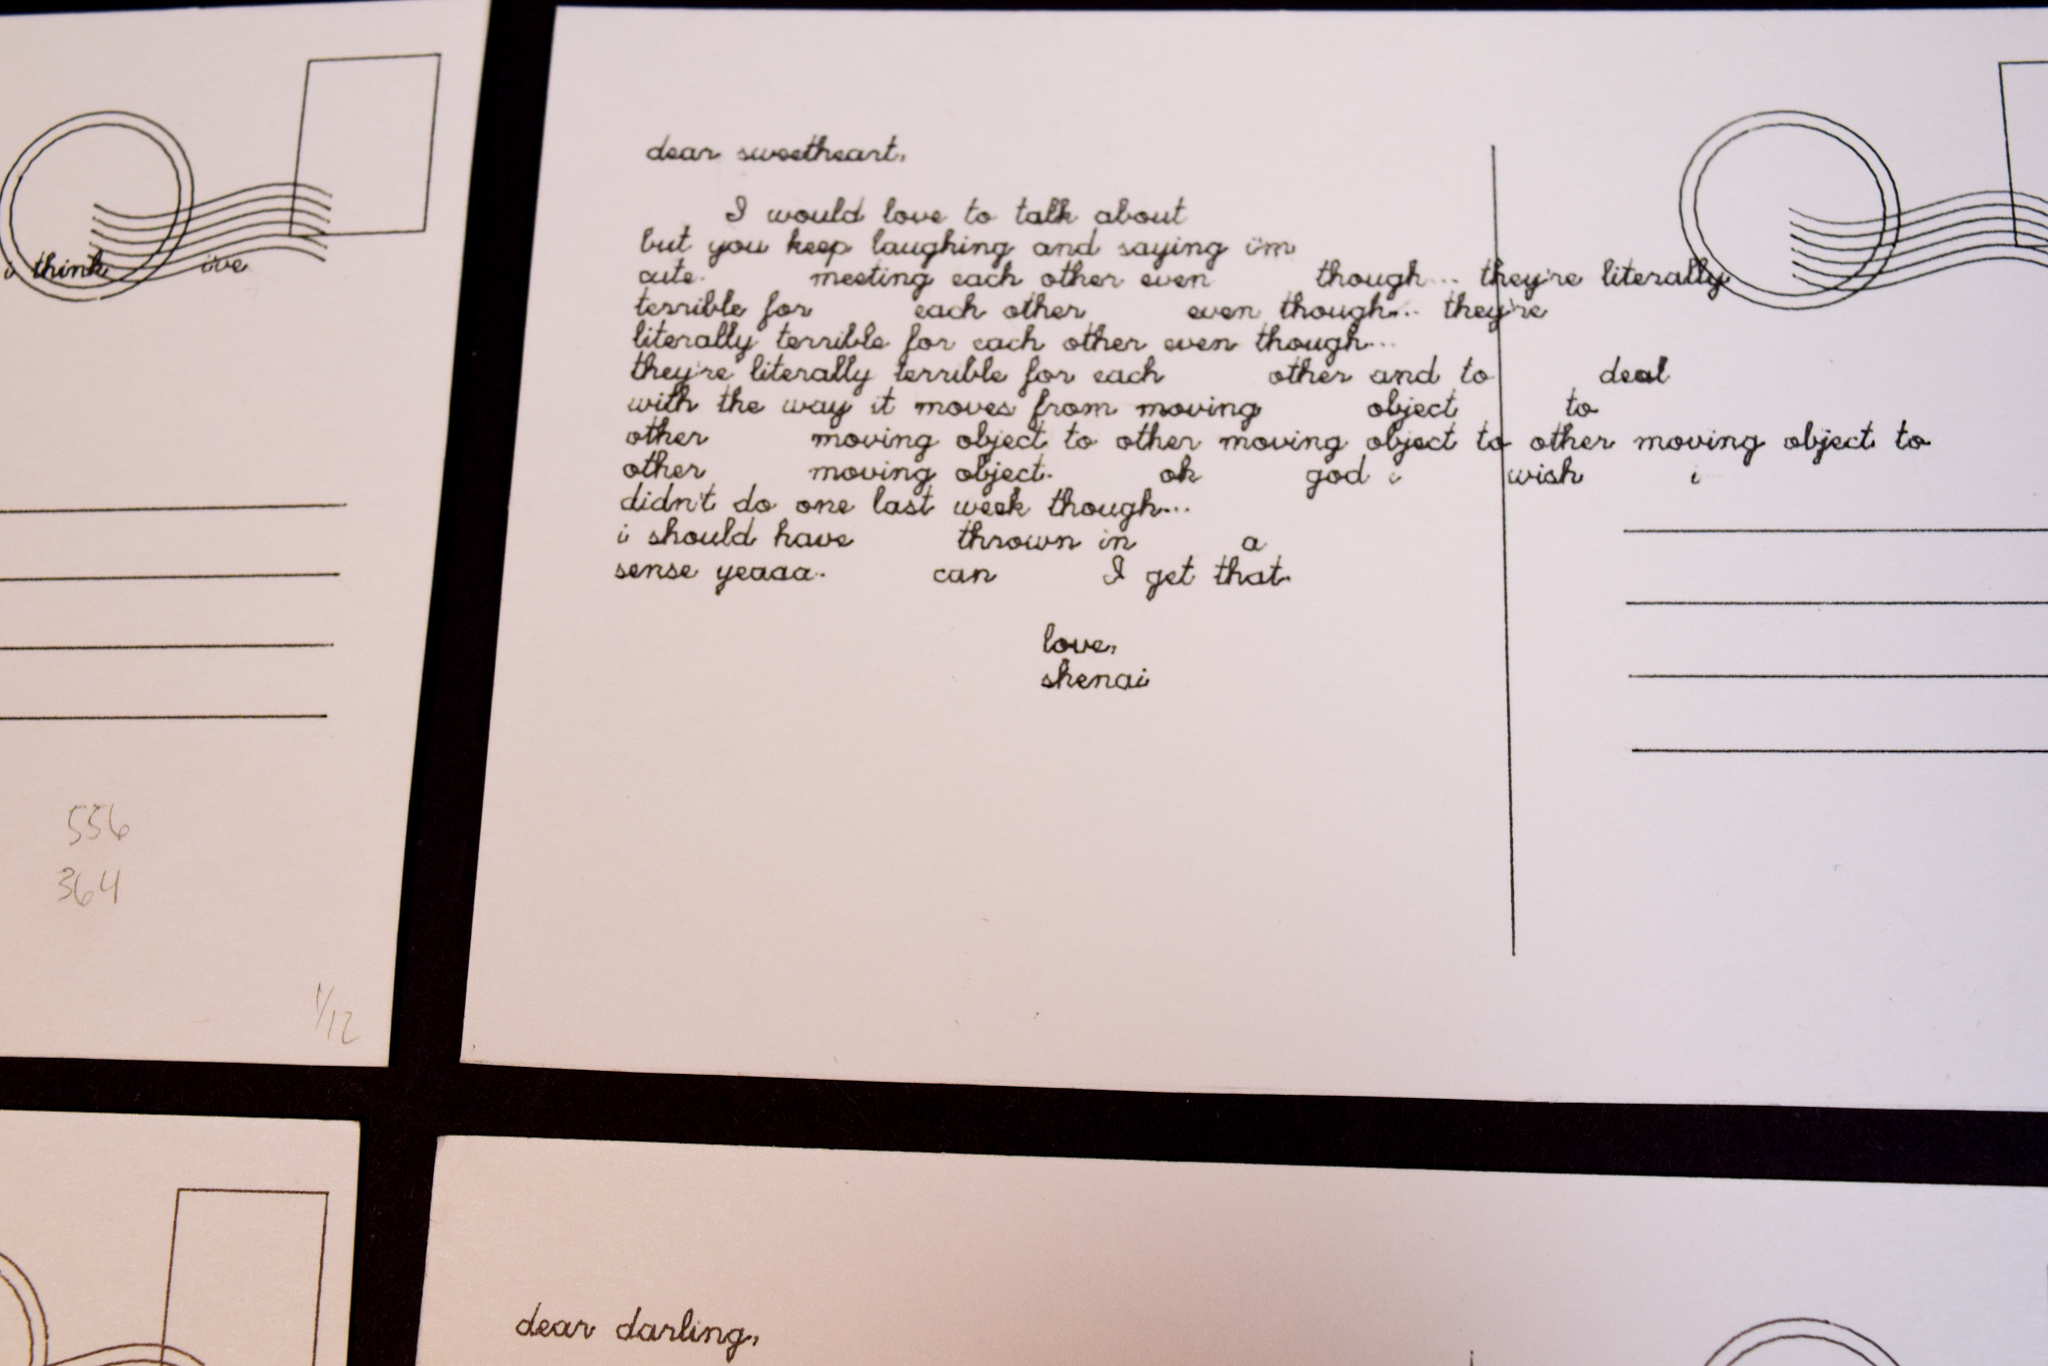 i think ive
556
364
1/12
dear sweetheart,
I would love to talk about
but you keep laughing and saying i'm
cute. meeting each other even though... they're literally
terrible for each other even though... they're
literally terrible for each other even though...
they're literally terrible for each other and to deal
with the way it moves from moving object to
other moving object to other moving object to other moving object to
other moving object. ok god i wish i
didn't do one last week though...
i should have thrown in a
sense yeaaa. can I get that.
love,
shenai
dear darling,